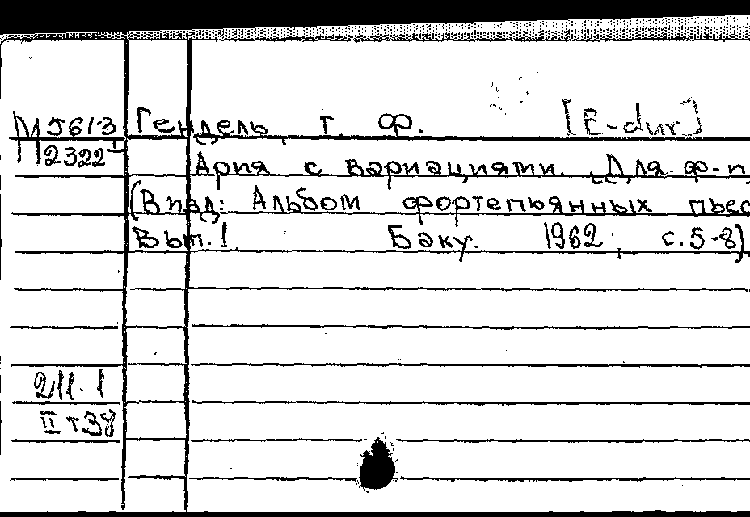 М 5613 Гендель, Г. Ф. [E-dur]
2322 I Ария с вариациями. Для ф-п
(В изд: Альбом фортепьянных пьес
Вып. 1. Баку. 1962, с. 5-8).
211. 1
II т 38